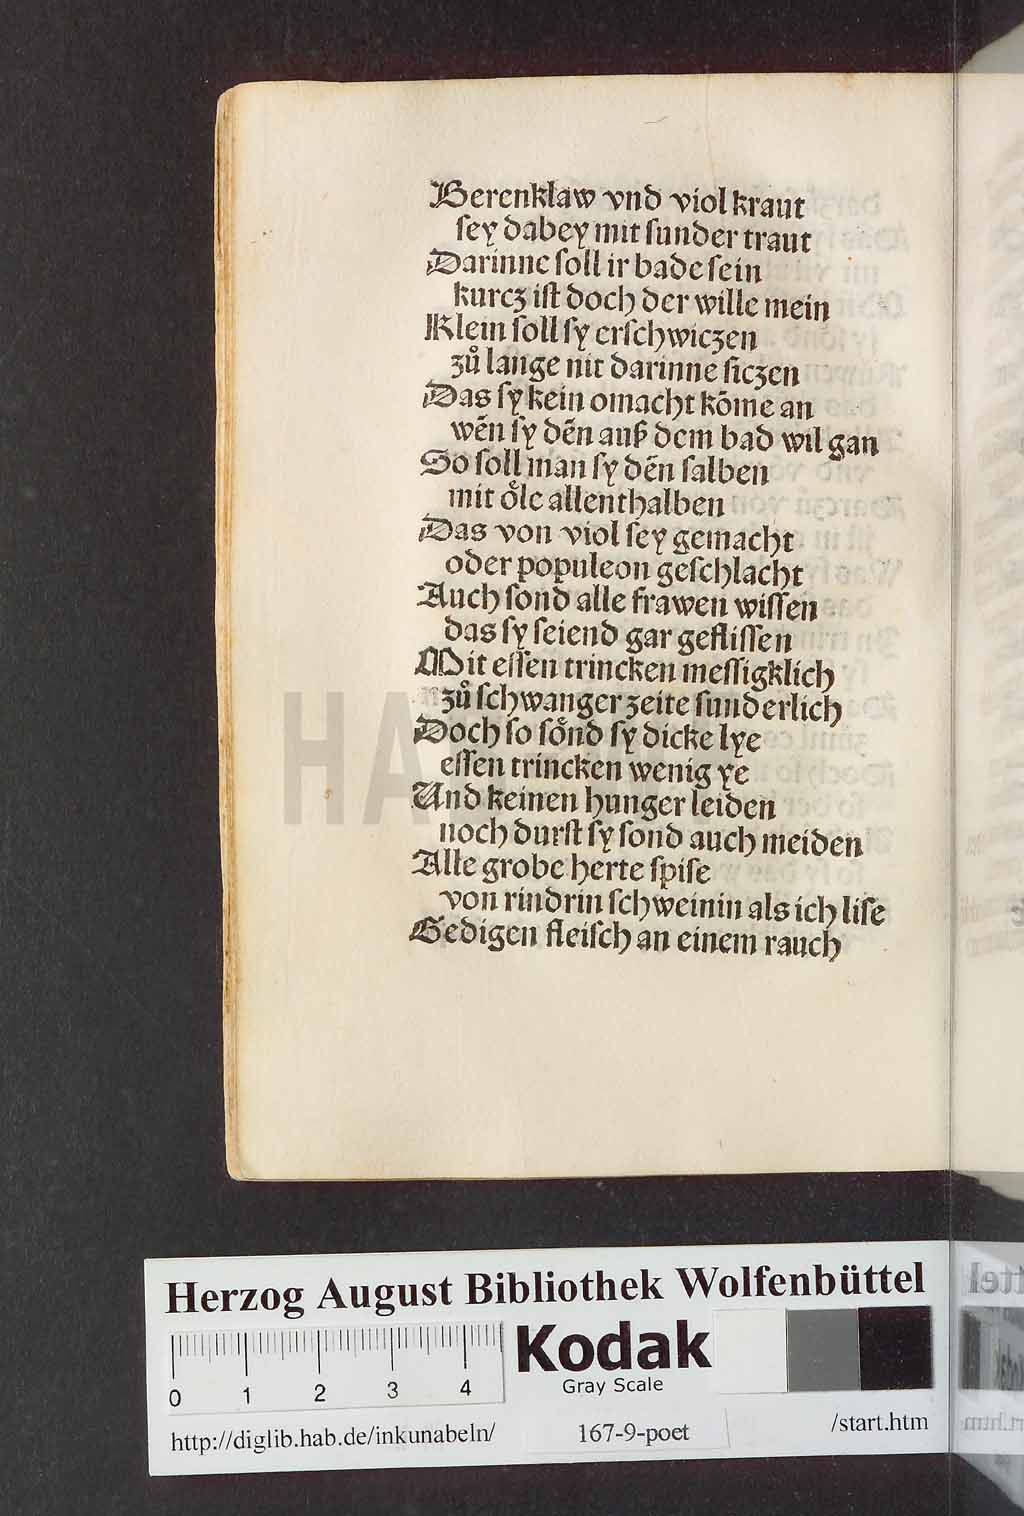 Berenklaw vnd viol kraut
sey dabey mit sunder traut
Darinne soll ir bade sein
kurcz ist doch der wille mein
Klein soll sy erschwiczen
zů lange nit darinne siczen
Das sy kein omacht kōme an
wēn sy dēn auß dem bad wil gan
So soll man sy dēn salben
mit oͤle allenthalben
Das von viol sey gemacht
oder populeon geschlacht
Auch sond alle frawen wissen
das sy seiend gar geflissen
Mit essen trincken messigklich
zů schwanger zeite sunderlich
Doch so soͤnd sy dicke lye
essen trincken wenig ye
Und keinen hunger leiden
noch durst sy sond auch meiden
Alle grobe herte spise
von rindrin schweinin als ich lise
Gedigen fleisch an einem rauch
HAB
Herzog August Bibliothek Wolfenbüttel
0 1 2 3 4
Kodak
Gray Scale
http://diglib.hab.de/inkunabeln/
167-9-poet
/start.htm